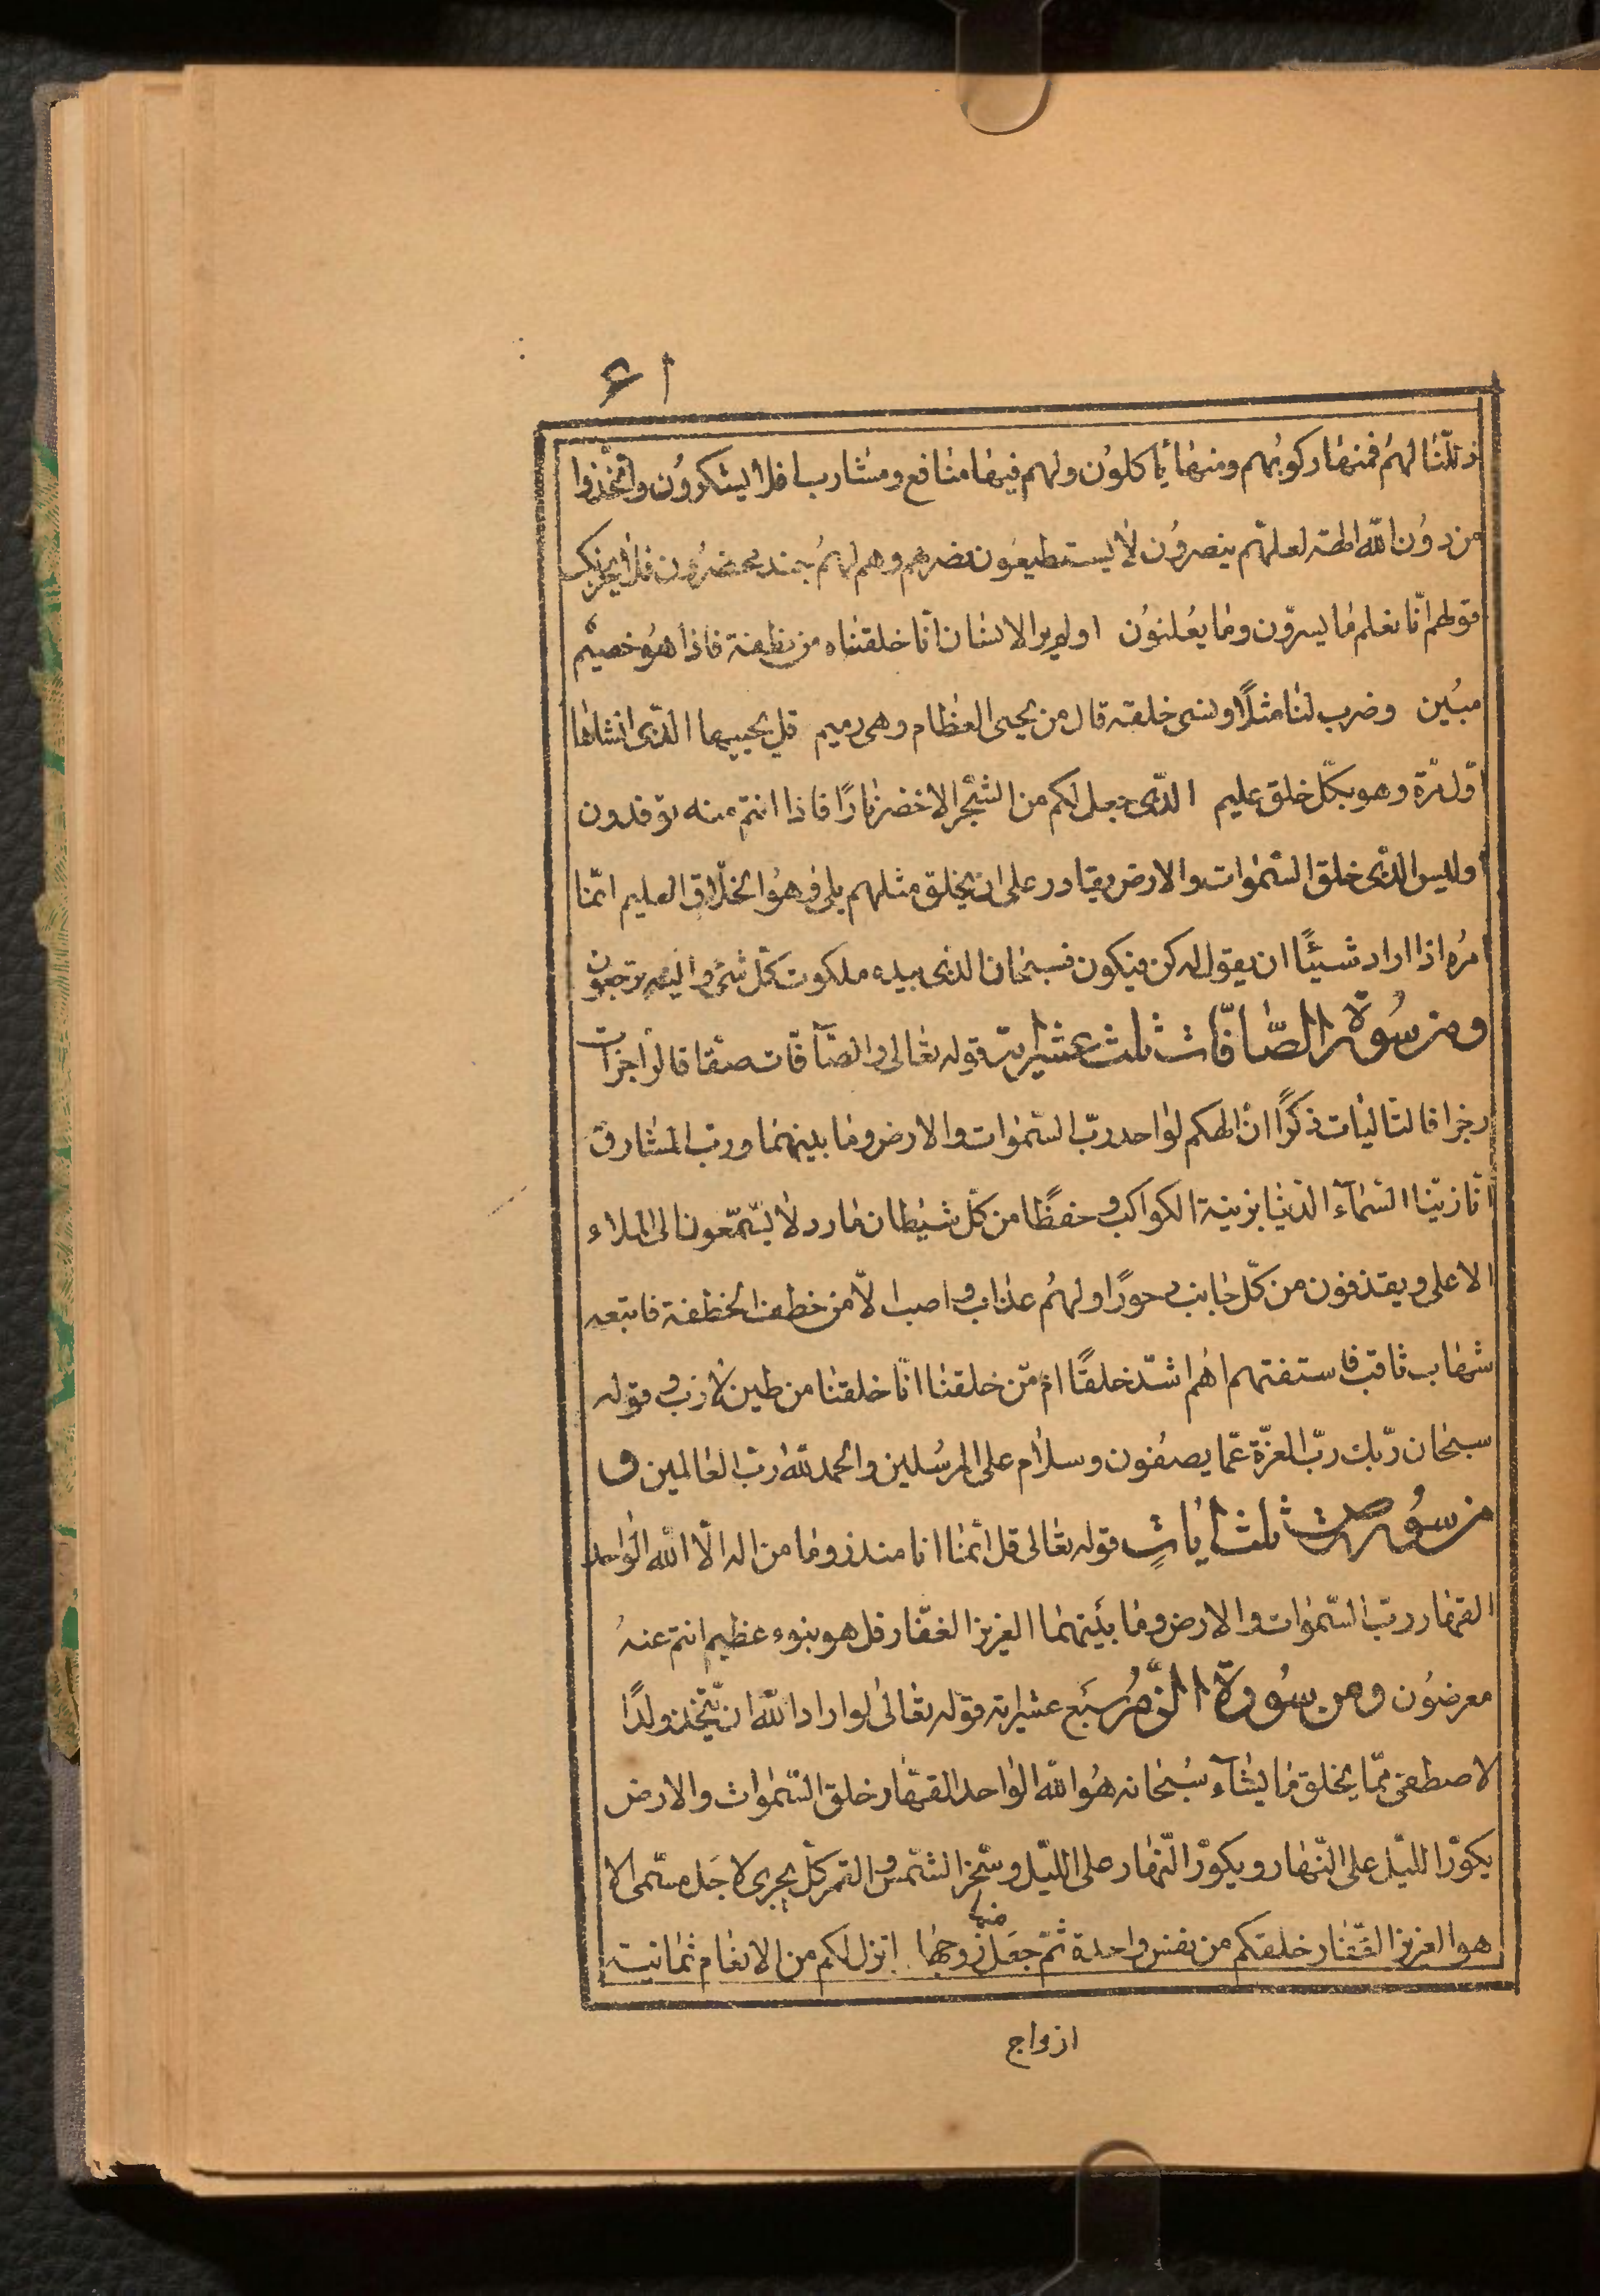 ۶۱
ذللنا لهم فمنها ركوبهم ومنها يأكلون ولهم فيها منافع ومشارب افلا يشكرون واتخذوا
من دون الله الهة لعلهم ينصرون لا يستطيعون نصرهم وهم لهم جند محضرون فلا يحزنك
قولهم انا نعلم ما يسرون وما يعلنون اولم ير الانسان انا خلقناه من نطفة فاذا هو خصيم
مبين وضرب لنا مثلًا ونسى خلقه قال من يحيى العظام وهى رميم قل يحييها الذى انشاها
اول مرة وهو بكل خلق عليم الذى جعل لكم من الشجر الاخضر نارًا فاذا انتم منه توقدون
اوليس الذى خلق السموات والارض بقادر على ان يخلق مثلهم بلى وهو الخلاق العليم انما
امره اذا اراد شيئًا ان يقول له كن فيكون فسبحان الذى بيده ملكوت كل شئ واليه ترجعون
ومن سورة الصافات ثلث عشر اية قوله تعالى والصافات صفا فالزاجرات
زجرا فالتاليات ذكرًا ان الهكم لواحد رب السموات والارض وما بينهما ورب المشارق
انا زينا السماء الدنيا بزينة الكواكب وحفظًا من كل شيطان مارد لا يسمعون الى الملاء
الاعلى ويقذفون من كل جانب دحورًا ولهم عذاب واصب الا من خطف الخطفة فاتبعه
شهاب ثاقب فاستفتهم اهم اشد خلقًا ام من خلقنا انا خلقنا من طين لازب وقوله
سبحان ربك رب العزة عما يصفون وسلام على المرسلين والحمد لله رب العالمين و
من سورة ص ثلث ايات قوله تعالى قل انما انا منذر وما من اله الا الله الواحد
القهار رب السموات والارض وما بينهما العزيز الغفار قل هو نبوء عظيم انتم عنه
معرضون ومن سورة الزمر سبع عشر اية قوله تعالى لو اراد الله ان يتخذ ولدًا
لاصطفى مما يخلق ما يشآء سبحانه هو الله الواحد القهار خلق السموات والارض
يكور الليل على النهار ويكور النهار على الليل وسخر الشمس والقمر كل يجرى لاجل مسمى الا
هو العزيز الغفار خلقكم من نفس واحدة ثم جعل منها زوجها انزل لكم من الانعام ثمانية
ازواج